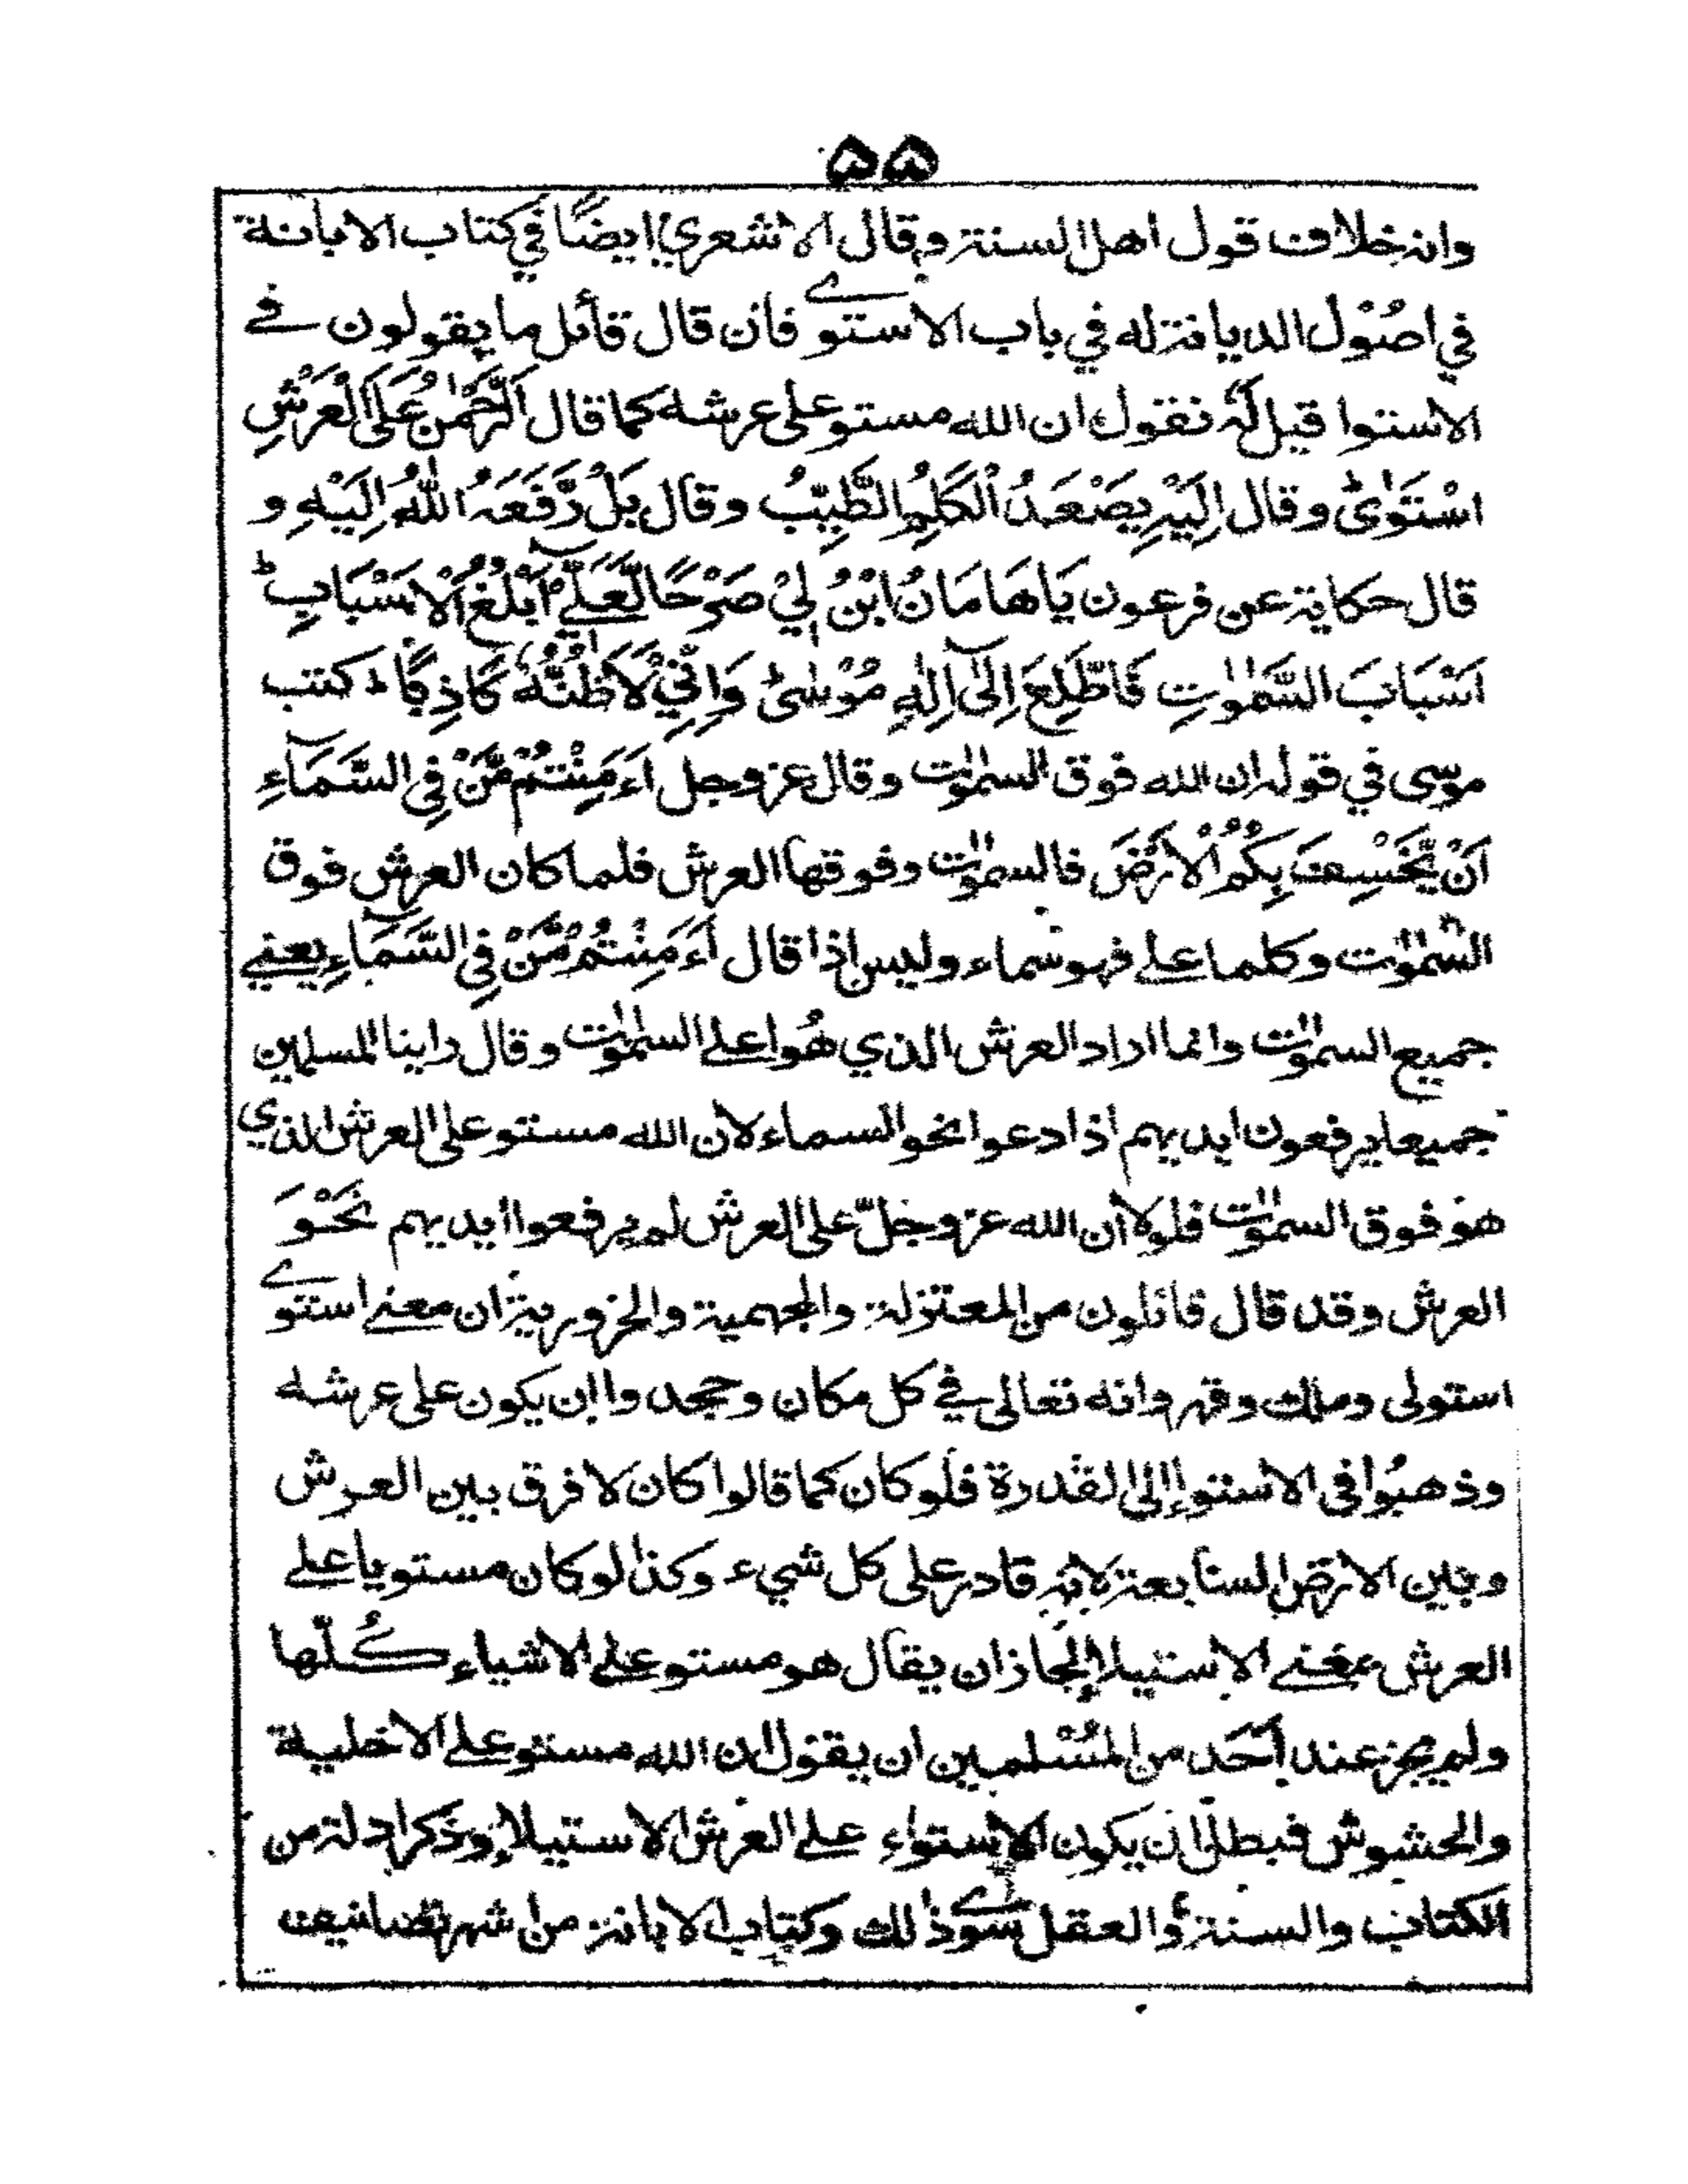 ۵۵
وانه خلاف قول اهل السنة وقال الاشعري ايضًا في كتاب الابانة
في اصُول الديانة له في باب الاستوے فان قال قائل ما يقولون في
الاستوا قيل لَهٗ نقول ان الله مستو على عرشه كما قال اَلرَّحْمٰنُ عَلَى الْعَرْشِ
اسْتَوٰىؕ وقال اِلَيْهِ يَصْعَدُ الْكَلِمُ الطَّيِّبُ وقال بَلْ رَّفَعَهُ اللّٰهُ اِلَيْهِ و
قال حكاية عن فرعون يَاهَامَانُ ابْنُ لِيْ صَرْحًا لَّعَلِّيْٓ اَبْلُغُ الْاَسْبَابِؕ
اَسْبَابَ السَّمٰوٰتِ فَاَطَّلِعَ اِلٰٓى اِلٰهِ مُوْسٰىؕ وَاِنِّيْ لَاَظُنُّهٗ كَاذِبًاؕ كذب
موسى في قوله ان الله فوق السمٰوٰت وقال عز وجل اَءَمِنْتُمْ مَّنْ فِي السَّمَآءِ
اَنْ يَّخْسِفَ بِكُمُ الْاَرْضَ فالسمٰوٰت وفوقها العرش فلما كان العرش فوق
السَّمٰوٰت وكلما على فهو سماء وليس اذا قال اَءَمِنْتُمْ مَّنْ فِي السَّمَآءِ يعني
جميع السمٰوٰت وانما اراد العرش الذي هُو اعلى السمٰوٰت وقال راينا المسلمين
جميعا يرفعون ايديهم اذا دعوا نحو السماء لان الله مستو على العرش الذي
هو فوق السمٰوٰت فلولا ان الله عز وجلّ على العرش لم يرفعوا ايديهم نَحْوَ
العرش وقد قال قائلون من المعتزلة والجهمية والحرورية ان معنى استوے
استولى وملك وقهر وانه تعالى في كل مكان وجحدوا ان يكون على عرشه
وذهبُوا في الاستواء الى القدرة فلو كان كما قالوا كان لا فرق بين العرش
وبين الارض السابعة لانه قادر على كل شيء وكذا لو كان مستويا على
العرش بمعنى الاستيلاء لجاز ان يقال هو مستو على الاشياء كُلّها
ولم يجز عند اَحَد من المُسْلمين ان يقول ان الله مستو على الاخلية
والحشوش فبطل ان يكون الاستواء على العرش الاستيلاء وذكر ادلة من
الكتاب والسنة والعقل سوے ذلك وكتاب الابانة من اشهر تصانيف